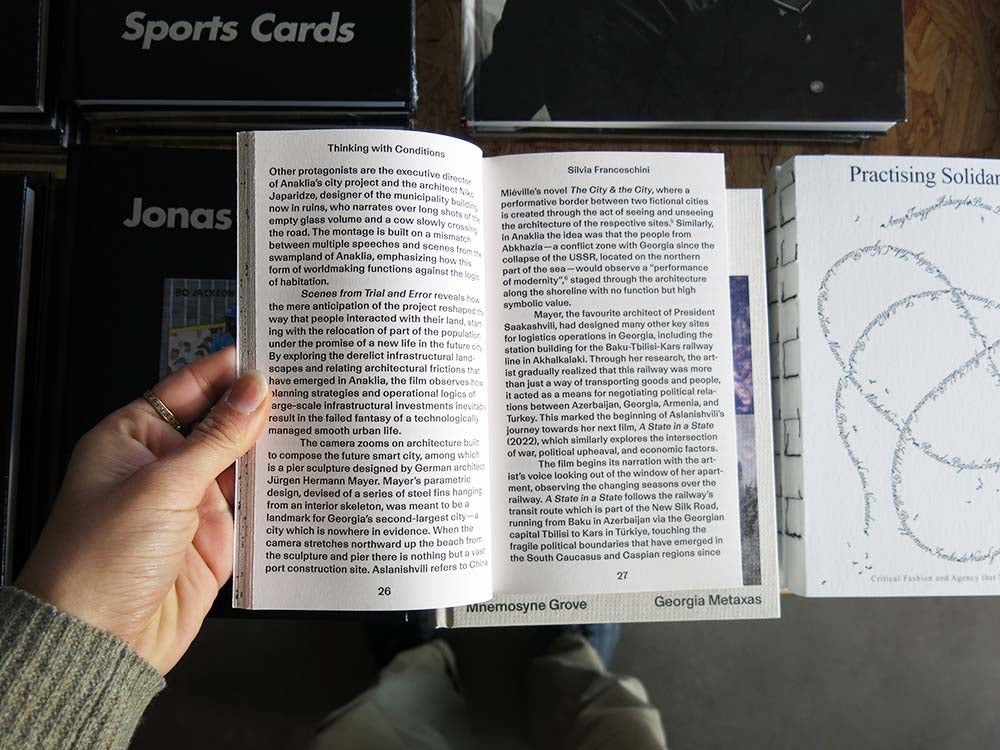 Sports Cards
Jonas
BO JACKSON
Thinking with Conditions
Other protagonists are the executive director
of Anaklia's city project and the architect Niko
Japaridze, designer of the municipality building,
now in ruins, who narrates over long shots of the
empty glass volume and a cow slowly crossing
the road. The montage is built on a mismatch
between multiple speeches and scenes from the
swampland of Anaklia, emphasizing how this
form of worldmaking functions against the logic
of habitation.
Scenes from Trial and Error reveals how
the mere anticipation of the project reshaped the
way that people interacted with their land, start-
ing with the relocation of part of the population
under the promise of a new life in the future city.
By exploring the derelict infrastructural land-
scapes and relating architectural frictions that
have emerged in Anaklia, the film observes how
planning strategies and operational logics of
large-scale infrastructural investments inevitably
result in the failed fantasy of a technologically
managed smooth urban life.
The camera zooms on architecture built
to compose the future smart city, among which
is a pier sculpture designed by German architect
Jürgen Hermann Mayer. Mayer's parametric
design, devised of a series of steel fins hanging
from an interior skeleton, was meant to be a
landmark for Georgia's second-largest city—a
city which is nowhere in evidence. When the
camera stretches northward up the beach from
the sculpture and pier there is nothing but a vast
port construction site. Aslanishvili refers to China
26
Silvia Franceschini
Miéville's novel The City & the City, where a
performative border between two fictional cities
is created through the act of seeing and unseeing
the architecture of the respective sites.⁵ Similarly,
in Anaklia the idea was that the people from
Abkhazia—a conflict zone with Georgia since the
collapse of the USSR, located on the northern
part of the sea—would observe a "performance
of modernity",⁶ staged through the architecture
along the shoreline with no function but high
symbolic value.
Mayer, the favourite architect of President
Saakashvili, had designed many other key sites
for logistics operations in Georgia, including the
station building for the Baku-Tbilisi-Kars railway
line in Akhalkalaki. Through her research, the art-
ist gradually realized that this railway was more
than just a way of transporting goods and people,
it acted as a means for negotiating political rela-
tions between Azerbaijan, Georgia, Armenia, and
Turkey. This marked the beginning of Aslanishvili's
journey towards her next film, A State in a State
(2022), which similarly explores the intersection
of war, political upheaval, and economic factors.
The film begins its narration with the art-
ist's voice looking out of the window of her apart-
ment, observing the changing seasons over the
railway. A State in a State follows the railway's
transit route which is part of the New Silk Road,
running from Baku in Azerbaijan via the Georgian
capital Tbilisi to Kars in Türkiye, touching the
fragile political boundaries that have emerged in
the South Caucasus and Caspian regions since
27
Mnemosyne Grove
Georgia Metaxas
Practising Solidar
Critical Fashion and Agency that